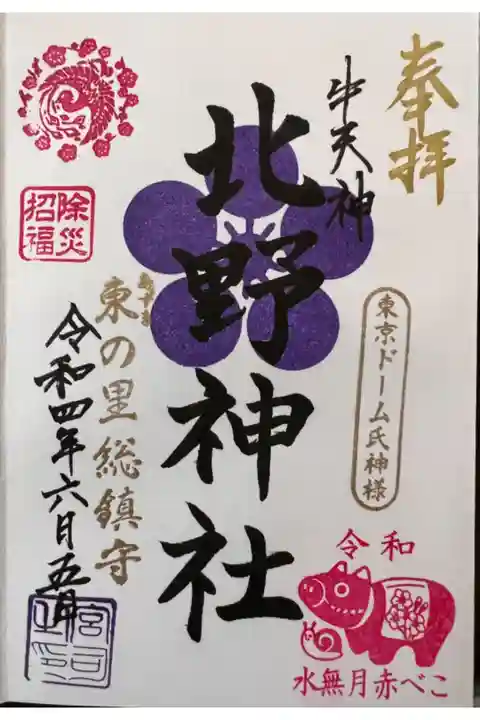 奉拝
牛天神
北野神社
東京ドーム氏神様
除災
招福
東の里総鎮守
令和四年六月五日
令和
水無月赤べこ